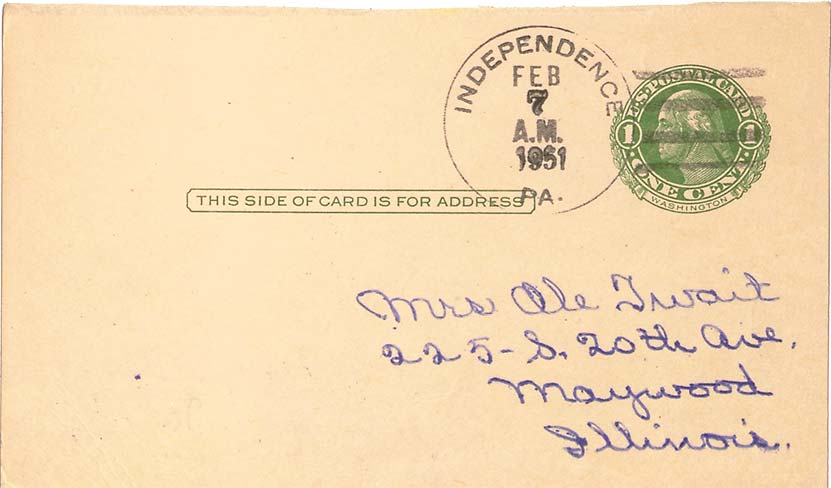 INDEPENDENCE
FEB
7
A.M.
1951
PA.
U.S. POSTAL CARD
1 1
ONE CENT
WASHINGTON
THIS SIDE OF CARD IS FOR ADDRESS
Mrs Ole Twait
225-S. 20th Ave.
Maywood
Illinois.